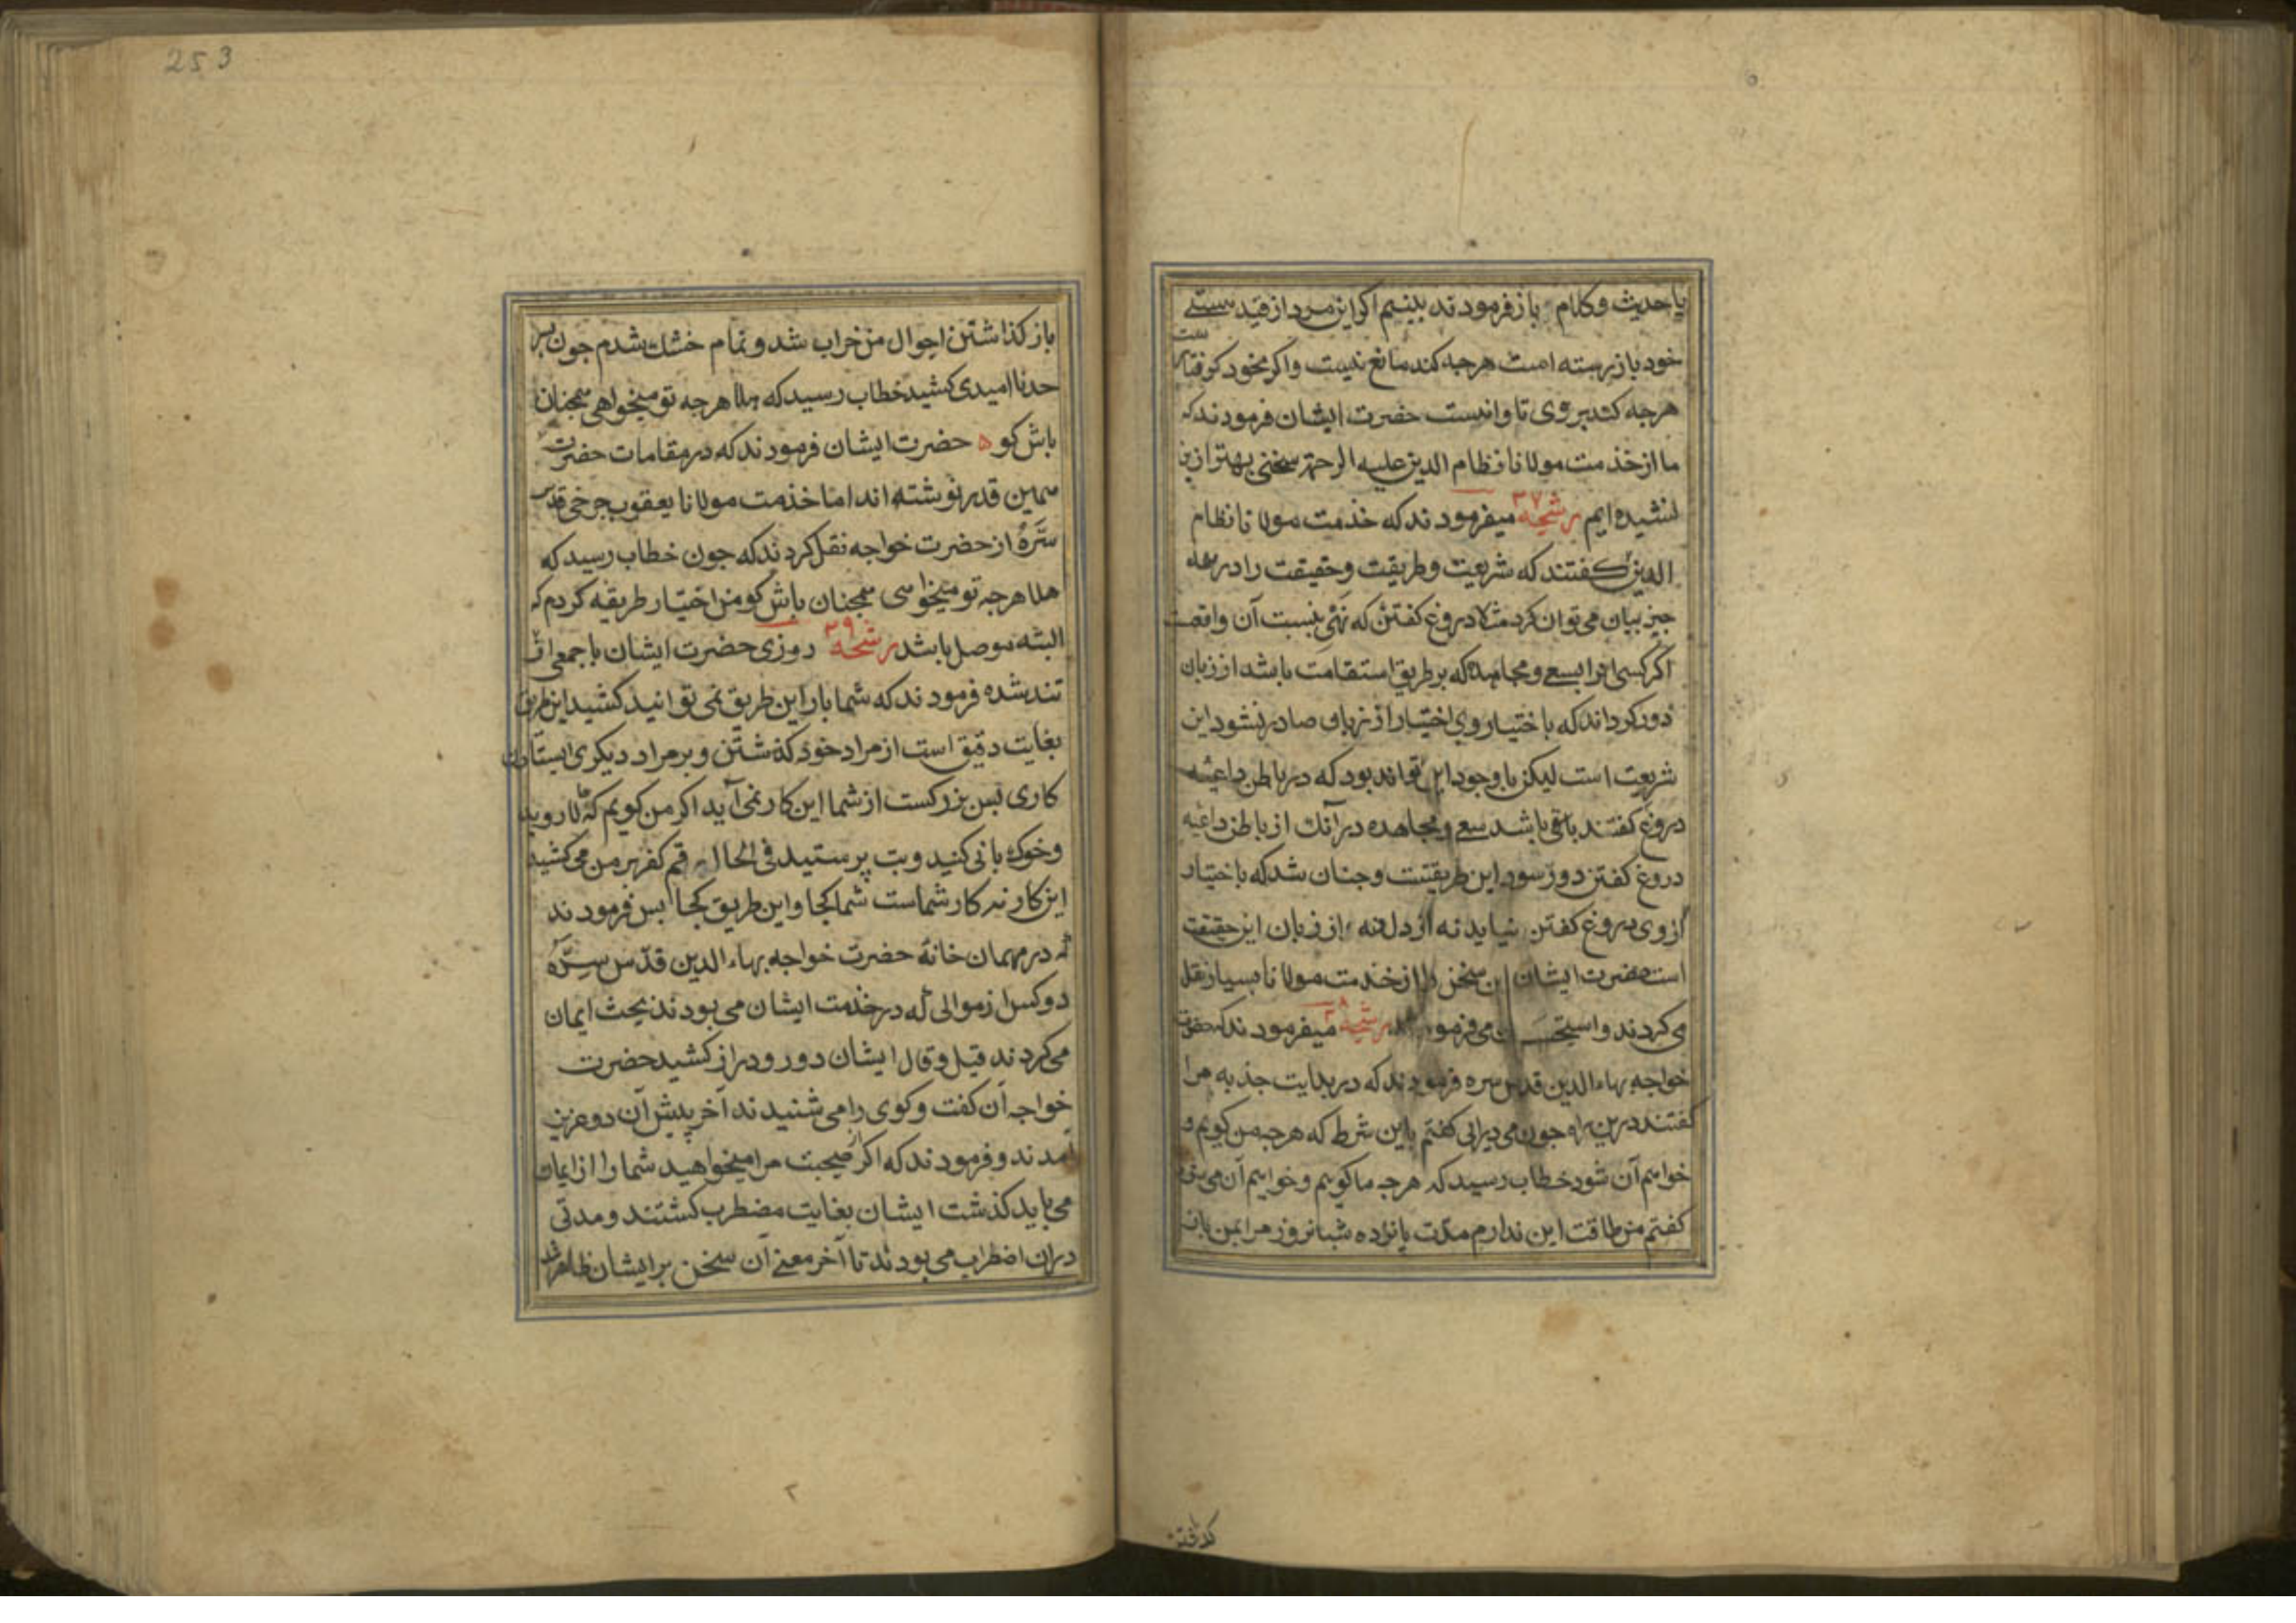 یا حدیث و کلام باز فرمودند بینیم اکر این مرد از قید هستی
خود باز رسته است هرجه کند مانع نیست و اکر بخود کرفتار
ست
هرجه کند بروی تاوانست حضرت ایشان فرمودند که
ما از خذمت مولانا نظام الدین علیه الرحمة سخنی بهتر ازین
نشنیده ایم رشحه ۳۷ میفرمودند که خذمت مولانا نظام
الدین کفتند که شریعت و طریقت و حقیقت را در همه
جیز بیان می توان کرد مثلا دروغ کفتن که نهی بنسبت آن واقعست
اکر کسی انرا بسعی و مجاهده که بر طریق استقامت باشد از زبان
دور کرداند که باختیار و بی اختیار از زبان صادر نشود این
شریعت است لیکن باوجود این تواند بود که در باطن داعیه
دروغ کفتند باقی باشد سعی و مجاهده در آنک از باطن داعیه
دروغ کفتن دور شود این طریقتت و جنان شد که باختیار
از وی دروغ کفتن نیاید نه از دل و نه از زبان این حقیقت
است حضرت ایشان این سخن را از خذمت مولانا بسیار نقل
می کردند و استحسان می فرمودند رشحه ۳۸ میفرمودند که حضرت
خواجه بهاء الدین قدس سره فرمودند که در بدایت جذبه مرا
کفتند درین راه جون می درایی کفتم باین شرط که هرجه من کویم و
خواهم آن شود خطاب رسید که هرجه ما کوییم و خواهیم آن می شود
کفتم من طاقت این ندارم مدت پانزده شبانروز مرا بمن باز
باز کذاشتن احوال من خراب شد و تمام خشک شدم جون بسر
حد ناامیدی کشید خطاب رسید که هلا هرجه تو میخواهی همجنان
باش کو ه حضرت ایشان فرمودند که در مقامات حضرت
همین قدر نوشته اند اما خذمت مولانا یعقوب جرخی قدس
سّره از حضرت خواجه نقل کردند که جون خطاب رسید که
هلا هرجه تو میخواهی همجنان باش کو من اختیار طریقه کردم که
البته موصل باشد رشحه ۳۹ روزی حضرت ایشان با جمعی از
تند شده فرمودند که شما بار این طریق نمی توانید کشید این طریق
بغایت دقیق است از مراد خود کذشتن و بر مراد دیکری ایستادن
کاری بس بزرکست از شما این کار نمی آید اکر من کویم که روید
و خوک بانی کنید و بت پرستید فی الحال رقم کفر بر من می کشید
این کار نه کار شماست شما کجا و این طریق کجا بس فرمودند
که در مهمان خانهٔ حضرت خواجه بهاء الدین قدّس سِرّه
دو کس از موالی که در خذمت ایشان می بودند بحث ایمان
می کردند قیل و قال ایشان دور و دراز کشید حضرت
خواجه آن کفت و کوی را می شنیدند آخر پیش آن دو عزیز
آمدند و فرمودند که اکر صحبت مرا میخواهید شما را از ایمان
می باید کذشت ایشان بغایت مضطرب کشتند و مدتی
دران اضطراب می بودند تا آخر معنی آن سخن بر ایشان ظاهر شد
253